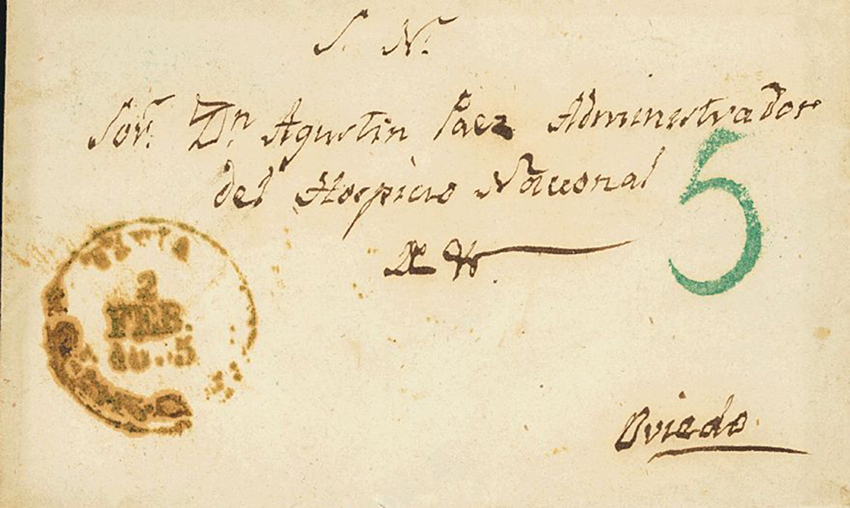 S. N.
Sor. Dn Agustin Paez Administrador
del Hospicio Nacional
5
2
FEB.
Oviedo